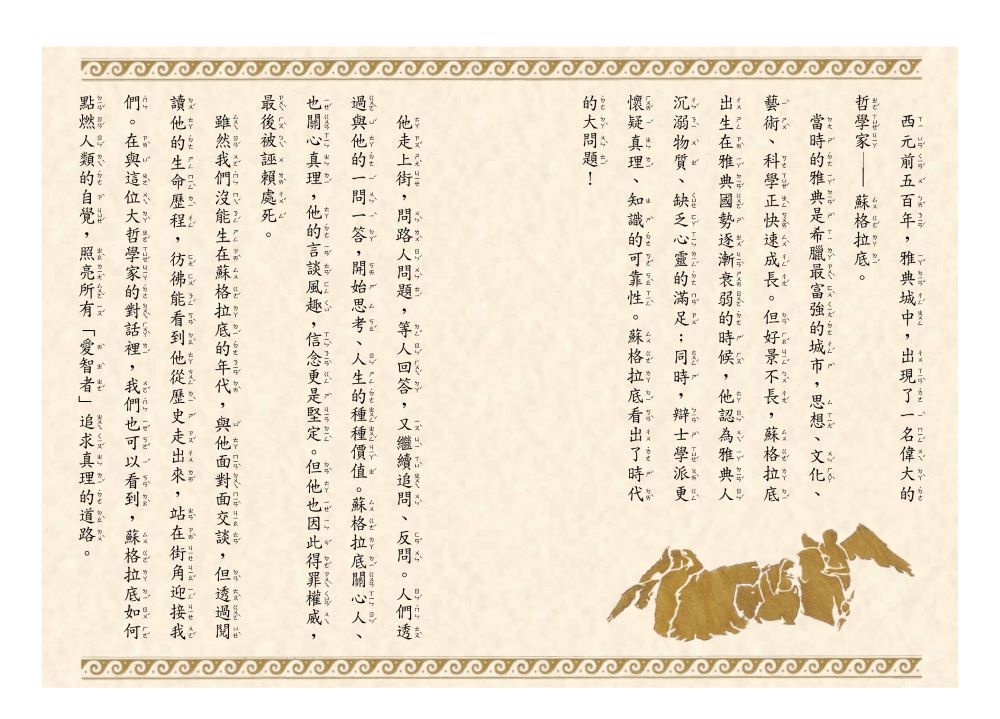 西元前五百年，雅典城中，出現了一名偉大的
哲學家——蘇格拉底。
當時的雅典是希臘最富強的城市，思想、文化、
藝術、科學正快速成長。但好景不長，蘇格拉底
出生在雅典國勢逐漸衰弱的時候，他認為雅典人
沉溺物質、缺乏心靈的滿足；同時，辯士學派更
懷疑真理、知識的可靠性。蘇格拉底看出了時代
的大問題！
他走上街，問路人問題，等人回答，又繼續追問、反問。人們透
過與他的一問一答，開始思考、人生的種種價值。蘇格拉底關心人、
也關心真理，他的言談風趣，信念更是堅定。但他也因此得罪權威，
最後被誣賴處死。
雖然我們沒能生在蘇格拉底的年代，與他面對面交談，但透過閱
讀他的生命歷程，彷彿能看到他從歷史走出來，站在街角迎接我
們。在與這位大哲學家的對話裡，我們也可以看到，蘇格拉底如何
點燃人類的自覺，照亮所有「愛智者」追求真理的道路。